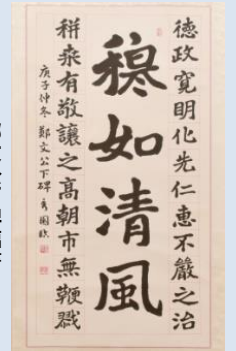 德政寬明化先仁惠不嚴之治
穆如清風
穆柔有敬讓之高朝市無鞭戮
庚子仲冬 鄭文公下碑